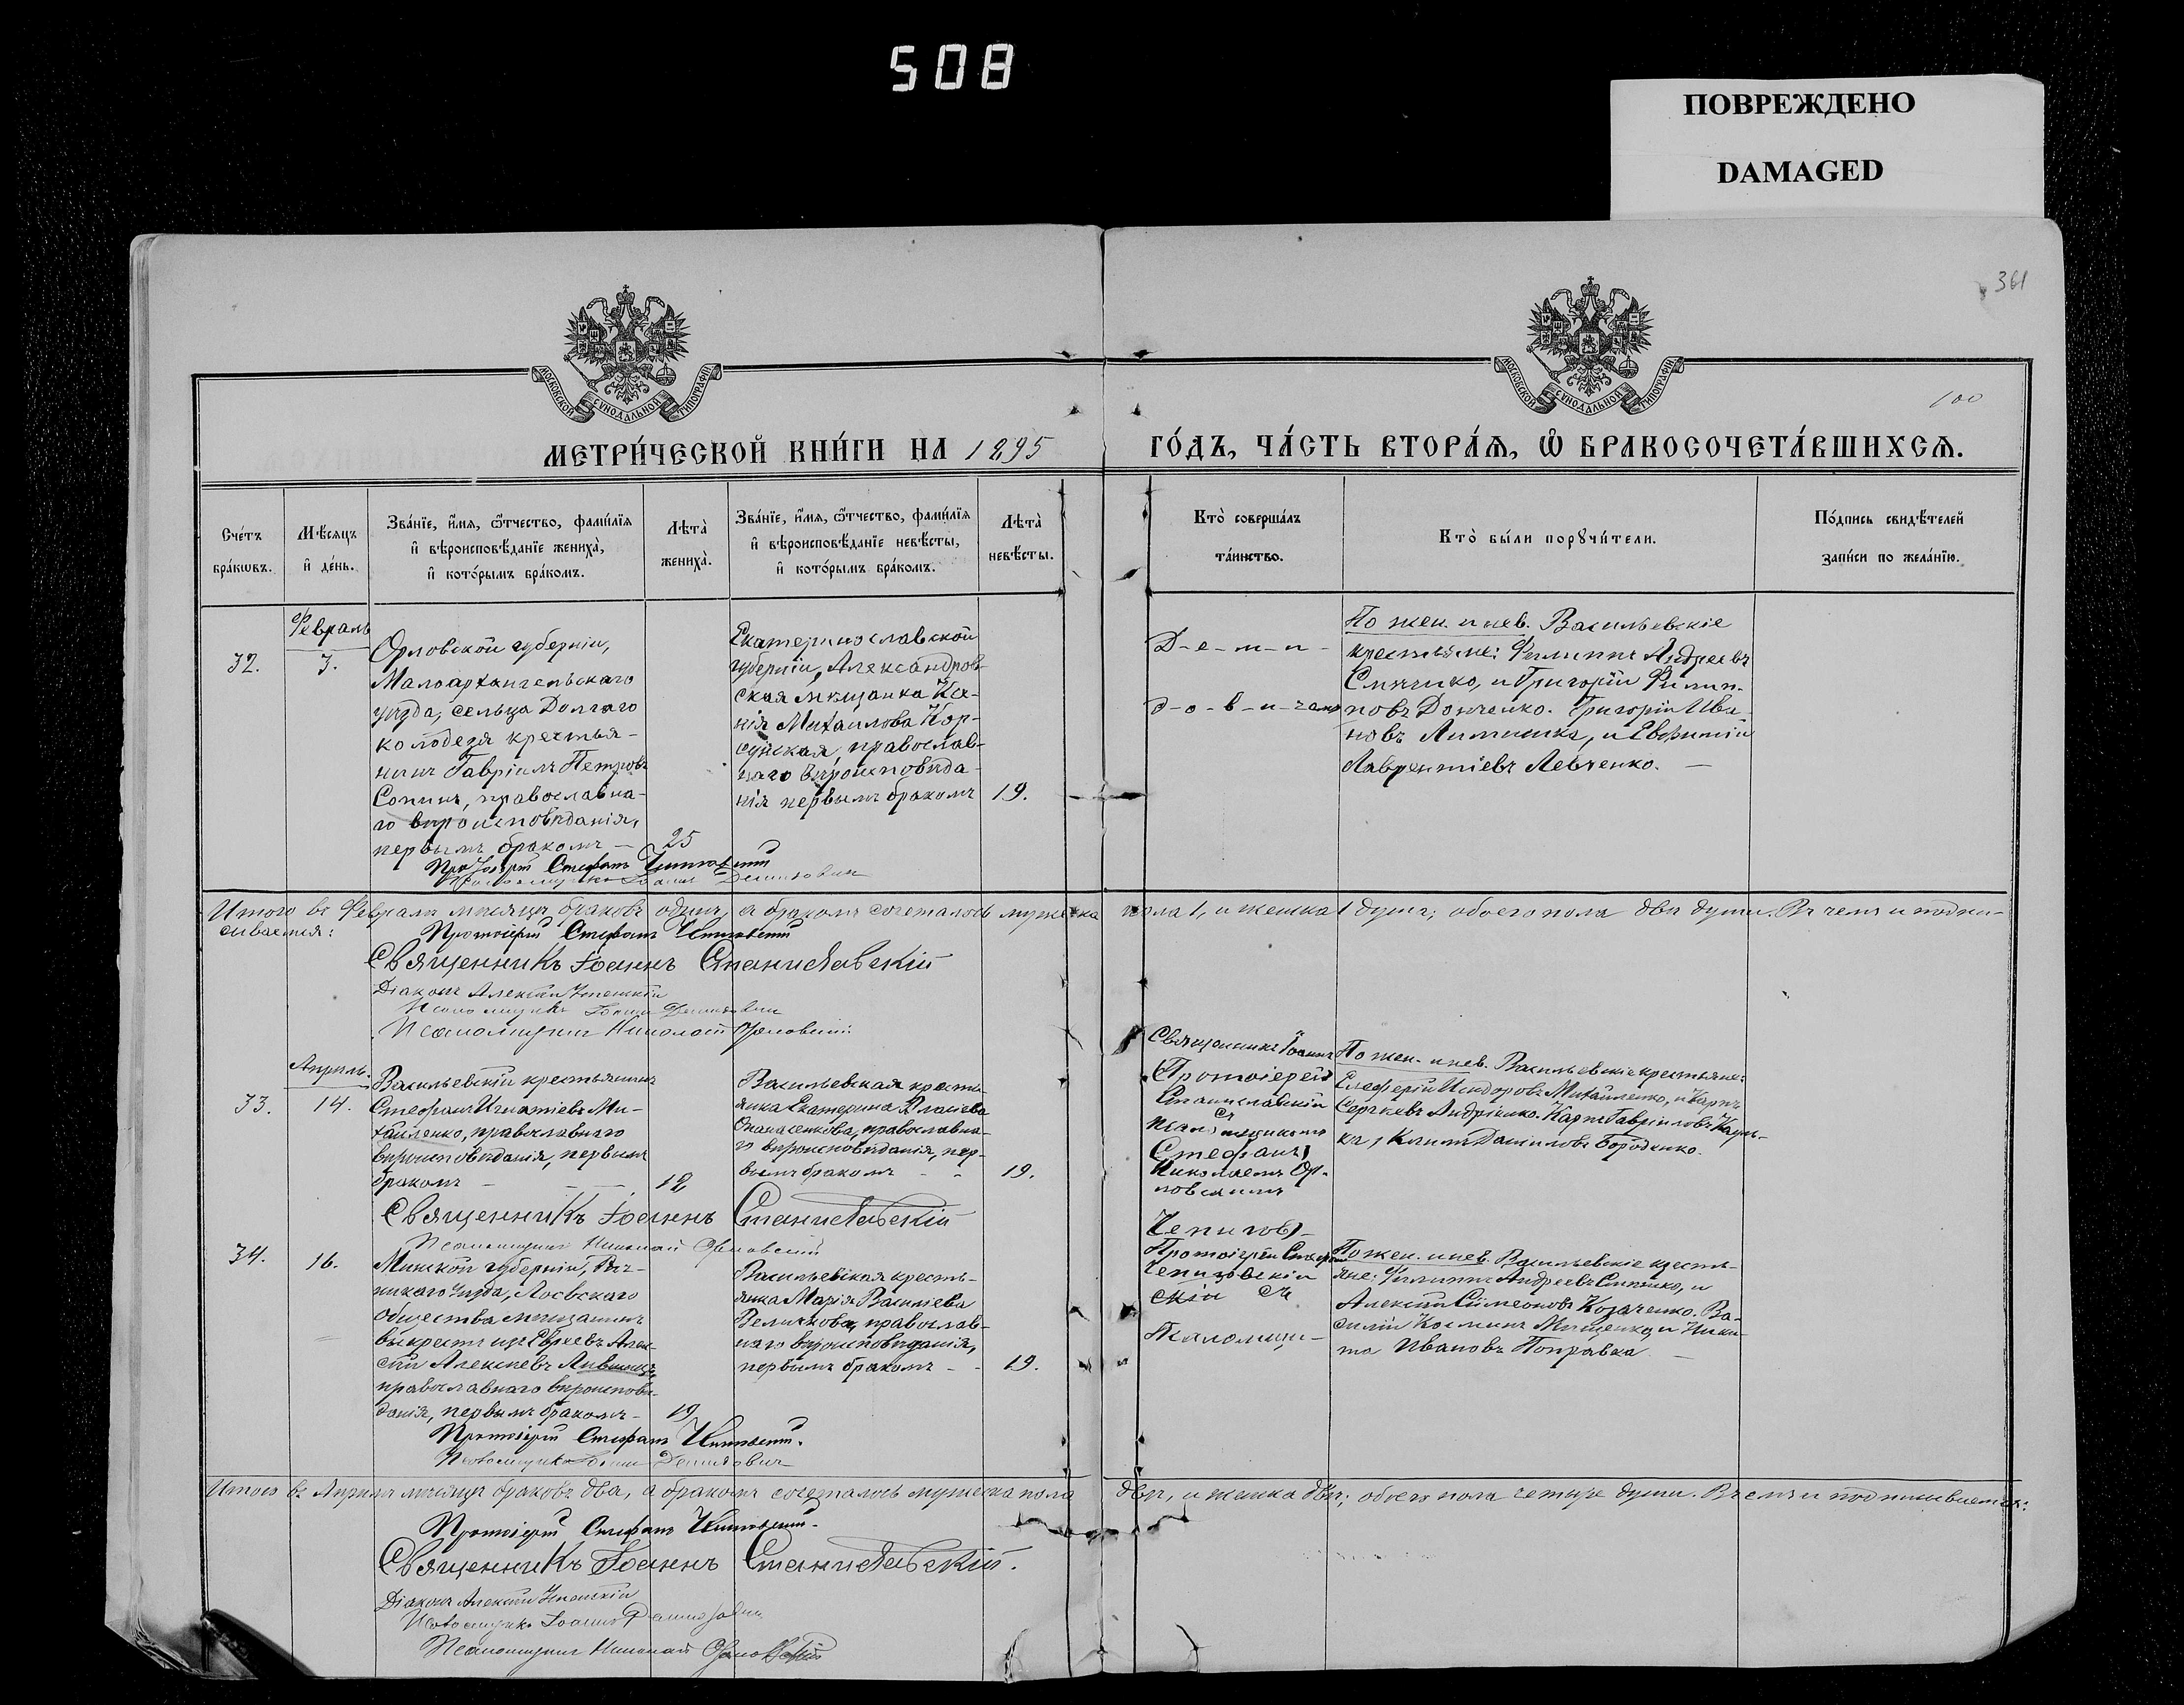 508
ПОВРЕЖДЕНО
DAMAGED
361
100
МОСКОВСКОЙ СѴНОДАЛЬНОЙ ТИПОГРАФІИ
МОСКОВСКОЙ СѴНОДАЛЬНОЙ ТИПОГРАФІИ
МЕТРИ́ЧЕСКОЙ КНИ́ГИ НА 1895
ГО́ДЪ, ЧА́СТЬ ВТОРА́Ѧ, Ѿ БРАКОСОЧЕТА́ВШИХСѦ.
Сче́тъ
бра́кѡвъ.
Мѣ́сѧцъ
и҆ де́нь.
Зва́нїе, и҆́мѧ, ѻ҆́тчество, фами́лїѧ
и҆ вѣроисповѣ́данїе жениха̀,
и҆ кото́рымъ бра́комъ.
Лѣта̀
жениха̀.
Зва́нїе, и҆́мѧ, ѻ҆́тчество, фами́лїѧ
и҆ вѣроисповѣ́данїе невѣ́сты,
и҆ кото́рымъ бра́комъ.
Лѣта̀
невѣ́сты.
Кто̀ соверша́лъ
та́инство.
Кто̀ бы́ли порꙋчи́тели.
По́дпись свидѣ́телей
за́писи по жела́нїю.
Февраль
32.
3.
Орловской губерніи,
Малоархангельскаго
уѣзда, сельца Долгаго
колодезя крестья-
нинъ Гавріилъ Петровъ
Сопинъ, православна-
го вѣроисповѣданія,
первымъ бракомъ —
25
Екатеринославской
губерніи, Александров-
ская мѣщанка Ксе-
нія Михаилова Кор-
сунская, православ-
наго вѣроисповѣда-
нія первымъ бракомъ
19.
Д-е-м-и-
д-о-в-и-чемъ
По жен. и нев. Васильевскіе
крестьяне: Филиппъ Андреевъ
Слипко, и Григорій Филип-
повъ Донченко. Григорій Ива-
новъ и Евфимій
Лаврентіевъ Левченко. —
Протоіерей Стефанъ
Псаломщикъ Іоаннъ Демидовичъ
Итого въ Февралѣ мѣсяцѣ браковъ одинъ, а бракомъ сочеталось мужеска пола 1, и женска 1 душа; обоего пола двѣ души. Въ чемъ и подпи-
сываемся:
Протоіерей Стефанъ
Священникъ Іоаннъ Станиславскій
Діаконъ Алексій Успенскій
Псаломщикъ Іоаннъ Демидовичъ
Псаломщикъ Николай Орловскій.
Апрѣль.
33.
14.
Васильевскій крестьянинъ
Стефанъ Игнатіевъ Ми-
хайленко, православнаго
вѣроисповѣданія, первымъ
бракомъ — — —.
18
Васильевская кресть-
янка Екатерина Власіева
Опанасенкова, православна-
го вѣроисповѣданія, пер-
вымъ бракомъ - -
19.
Священникъ Іоаннъ
Протоіерей
Станиславскій
съ
псаломщикомъ
Стефанъ
Николаемъ Ор-
ловскимъ
По жен. и нев. Васильевскіе крестьяне:
Елеферій Исидоровъ Михайленко, и Карпъ
Сергѣевъ Андріенко. Карпъ Гавріиловъ
Климъ Даниловъ Бороденко.
Священникъ Іоаннъ Станиславскій
Псаломщикъ Николай Орловскій
34.
16.
Минской губерніи, Рѣч-
ицкаго уѣзда, Лоевскаго
общества мѣщанинъ
выкрестъ изъ Евреевъ Алек-
сѣй Алексѣевъ Лившицъ,
православнаго вѣроисповѣ-
данія, первымъ бракомъ —
19
Васильевская кресть-
янка Марія Василіева
Величкова, православ-
наго вѣроисповѣданія,
первымъ бракомъ - -
19.
Чепигов-
Протоіерей Стефанъ
Чепиговскій
скій съ
Псаломщи-
По жен. и нев. Васильевскіе кресть-
яне: Филиппъ Андреевъ Слипко, и
Алексій Симеоновъ Козаченко. Ва-
силій Косминъ Мищенко, и Ники-
та Ивановъ Поправка —
Протоіерей Стефанъ
Псаломщикъ Іоаннъ Демидовичъ
Итого въ Апрѣлѣ мѣсяцѣ браковъ два, а бракомъ сочеталось мужеска пола двѣ, и женска двѣ; обоего пола четыре души. Въ чемъ и подписываемся:
Протоіерей Стефанъ
Священникъ Іоаннъ Станиславскій.
Діаконъ Алексій Успенскій
Псаломщикъ Іоаннъ Демидовичъ
Псаломщикъ Николай Орловскій